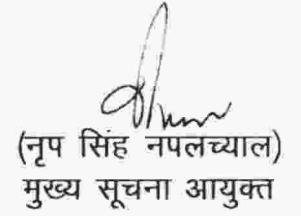 (नृप सिंह नपलच्याल)
मुख्य सूचना आयुक्त